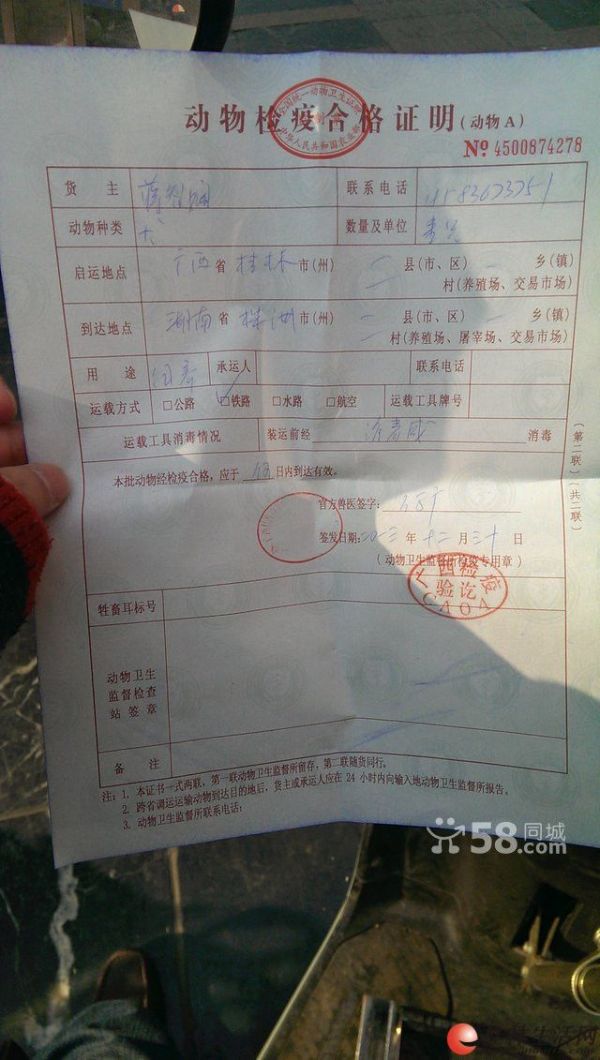 全国统一动物卫生证章
中华人民共和国农业部
动物检疫合格证明(动物A)
№ 4500874278
货主 联系电话
动物种类 犬 数量及单位 壹只
启运地点 广西省 桂林市(州) 县(市、区) 乡(镇)
村(养殖场、交易市场)
到达地点 湖南省 株洲市(州) 县(市、区) 乡(镇)
村(养殖场、屠宰场、交易市场)
用途 承运人 联系电话
运载方式 □公路 □铁路 □水路 □航空 运载工具牌号
运载工具消毒情况 装运前经 消毒
本批动物经检疫合格，应于 日内到达有效。
官方兽医签字：
签发日期：二〇一三年十二月三十日
(动物卫生监督所检疫专用章)
广西检疫
验讫
CAOA
牲畜耳标号
动物卫生
监督检查
站签章
备注
注：1. 本证书一式两联，第一联动物卫生监督所留存，第二联随货同行。
2. 跨省调运动物到达目的地后，货主或承运人应在24小时内向输入地动物卫生监督所报告。
3. 动物卫生监督所联系电话：
(第二联)(共二联)
58同城
.com
生活网